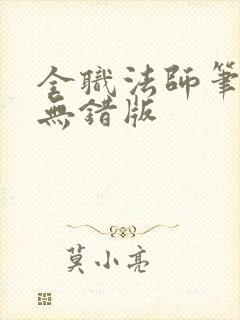 全職法師筆
無錯版
莫小亮